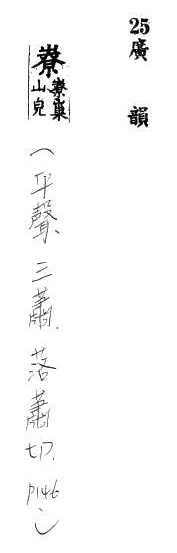 25廣韻
嶚嶚巢山皃（平聲、三蕭、落蕭切、P146）